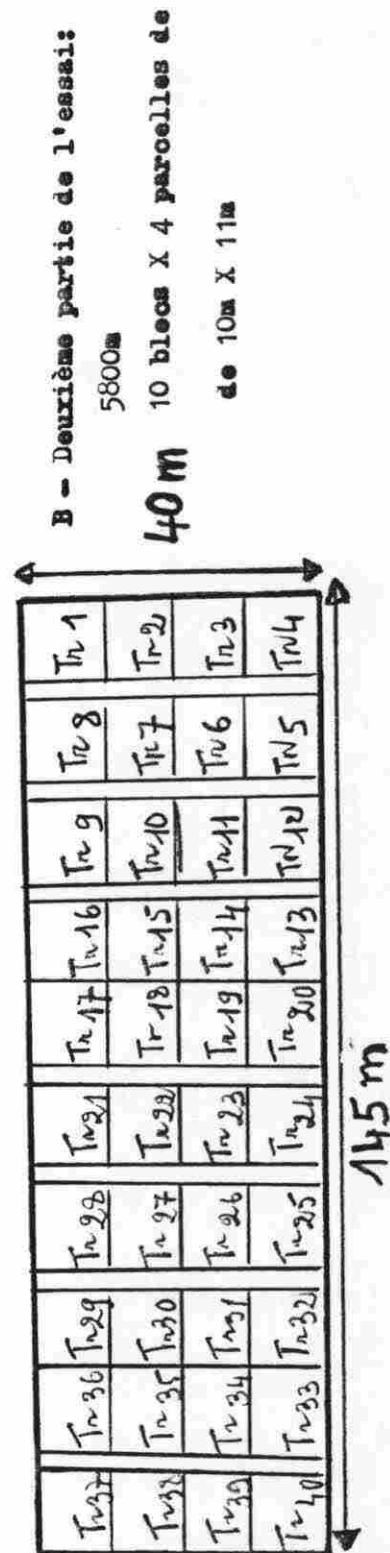 B - Deuxième partie de l'essai:
5800m
10 blocs X 4 parcelles de
de 10m X 11m
40 m
Tr37 Tr36 Tr29 Tr28 Tr21 Tr17 Tr16 Tr9 Tr8 Tr1
Tr38 Tr35 Tr30 Tr27 Tr22 Tr18 Tr15 Tr10 Tr7 Tr2
Tr39 Tr34 Tr31 Tr26 Tr23 Tr19 Tr14 Tr11 Tr6 Tr3
Tr40 Tr33 Tr32 Tr25 Tr24 Tr20 Tr13 Tr12 Tr5 Tr4
145 m